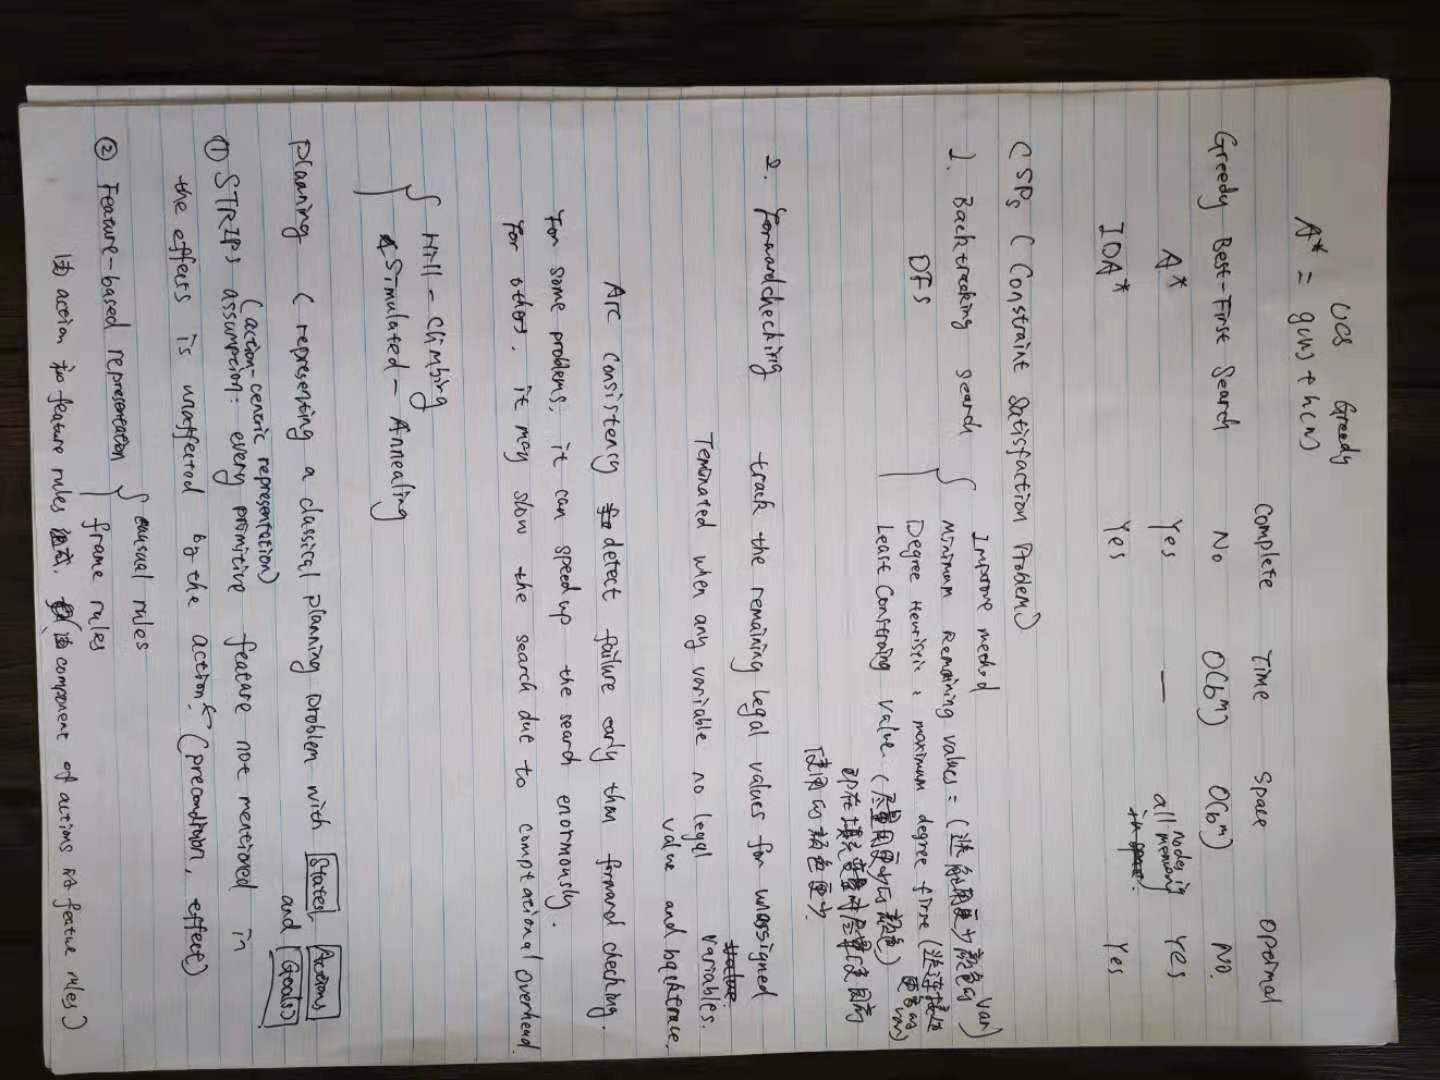 UCS Greedy
A* = g(n) + h(n)
Complete Time Space Optimal
Greedy Best-First Search No O(b^m) O(b^m) No.
A* Yes — all nodes in memory Yes
IDA* Yes Yes
CSPs (Constraint Satisfaction Problem)
1. Backtracking search Improve method
DFS
Minimum Remaining values = (选能用更少颜色的 var)
Degree Heuristic: maximum degree first (选连接处更多的 var)
Least Constraing value. (尽量用更少的颜色)
即在填充变量时尽量没用过的颜色更少.
2. Forwardcheching track the remaining legal values for unassigned variables.
Teminated when any variable no legal value and backtrace.
Arc consistency detect failure early than forward checking.
For some problems, it can speed up the search enormously.
For others, it may slow the search due to comptational overhead.
Hill-climbing
Simulated-Annealing
Planning (representing a classical planning problem with States, Actions and Goals)
(action-centric representation)
① STRIPs assumption: every primitive feature not mentioned in
the effects is unaffected by the action. (precondition, effect)
② Feature-based representation
causal rules
frame rules
action feature rules component of actions feature rules)